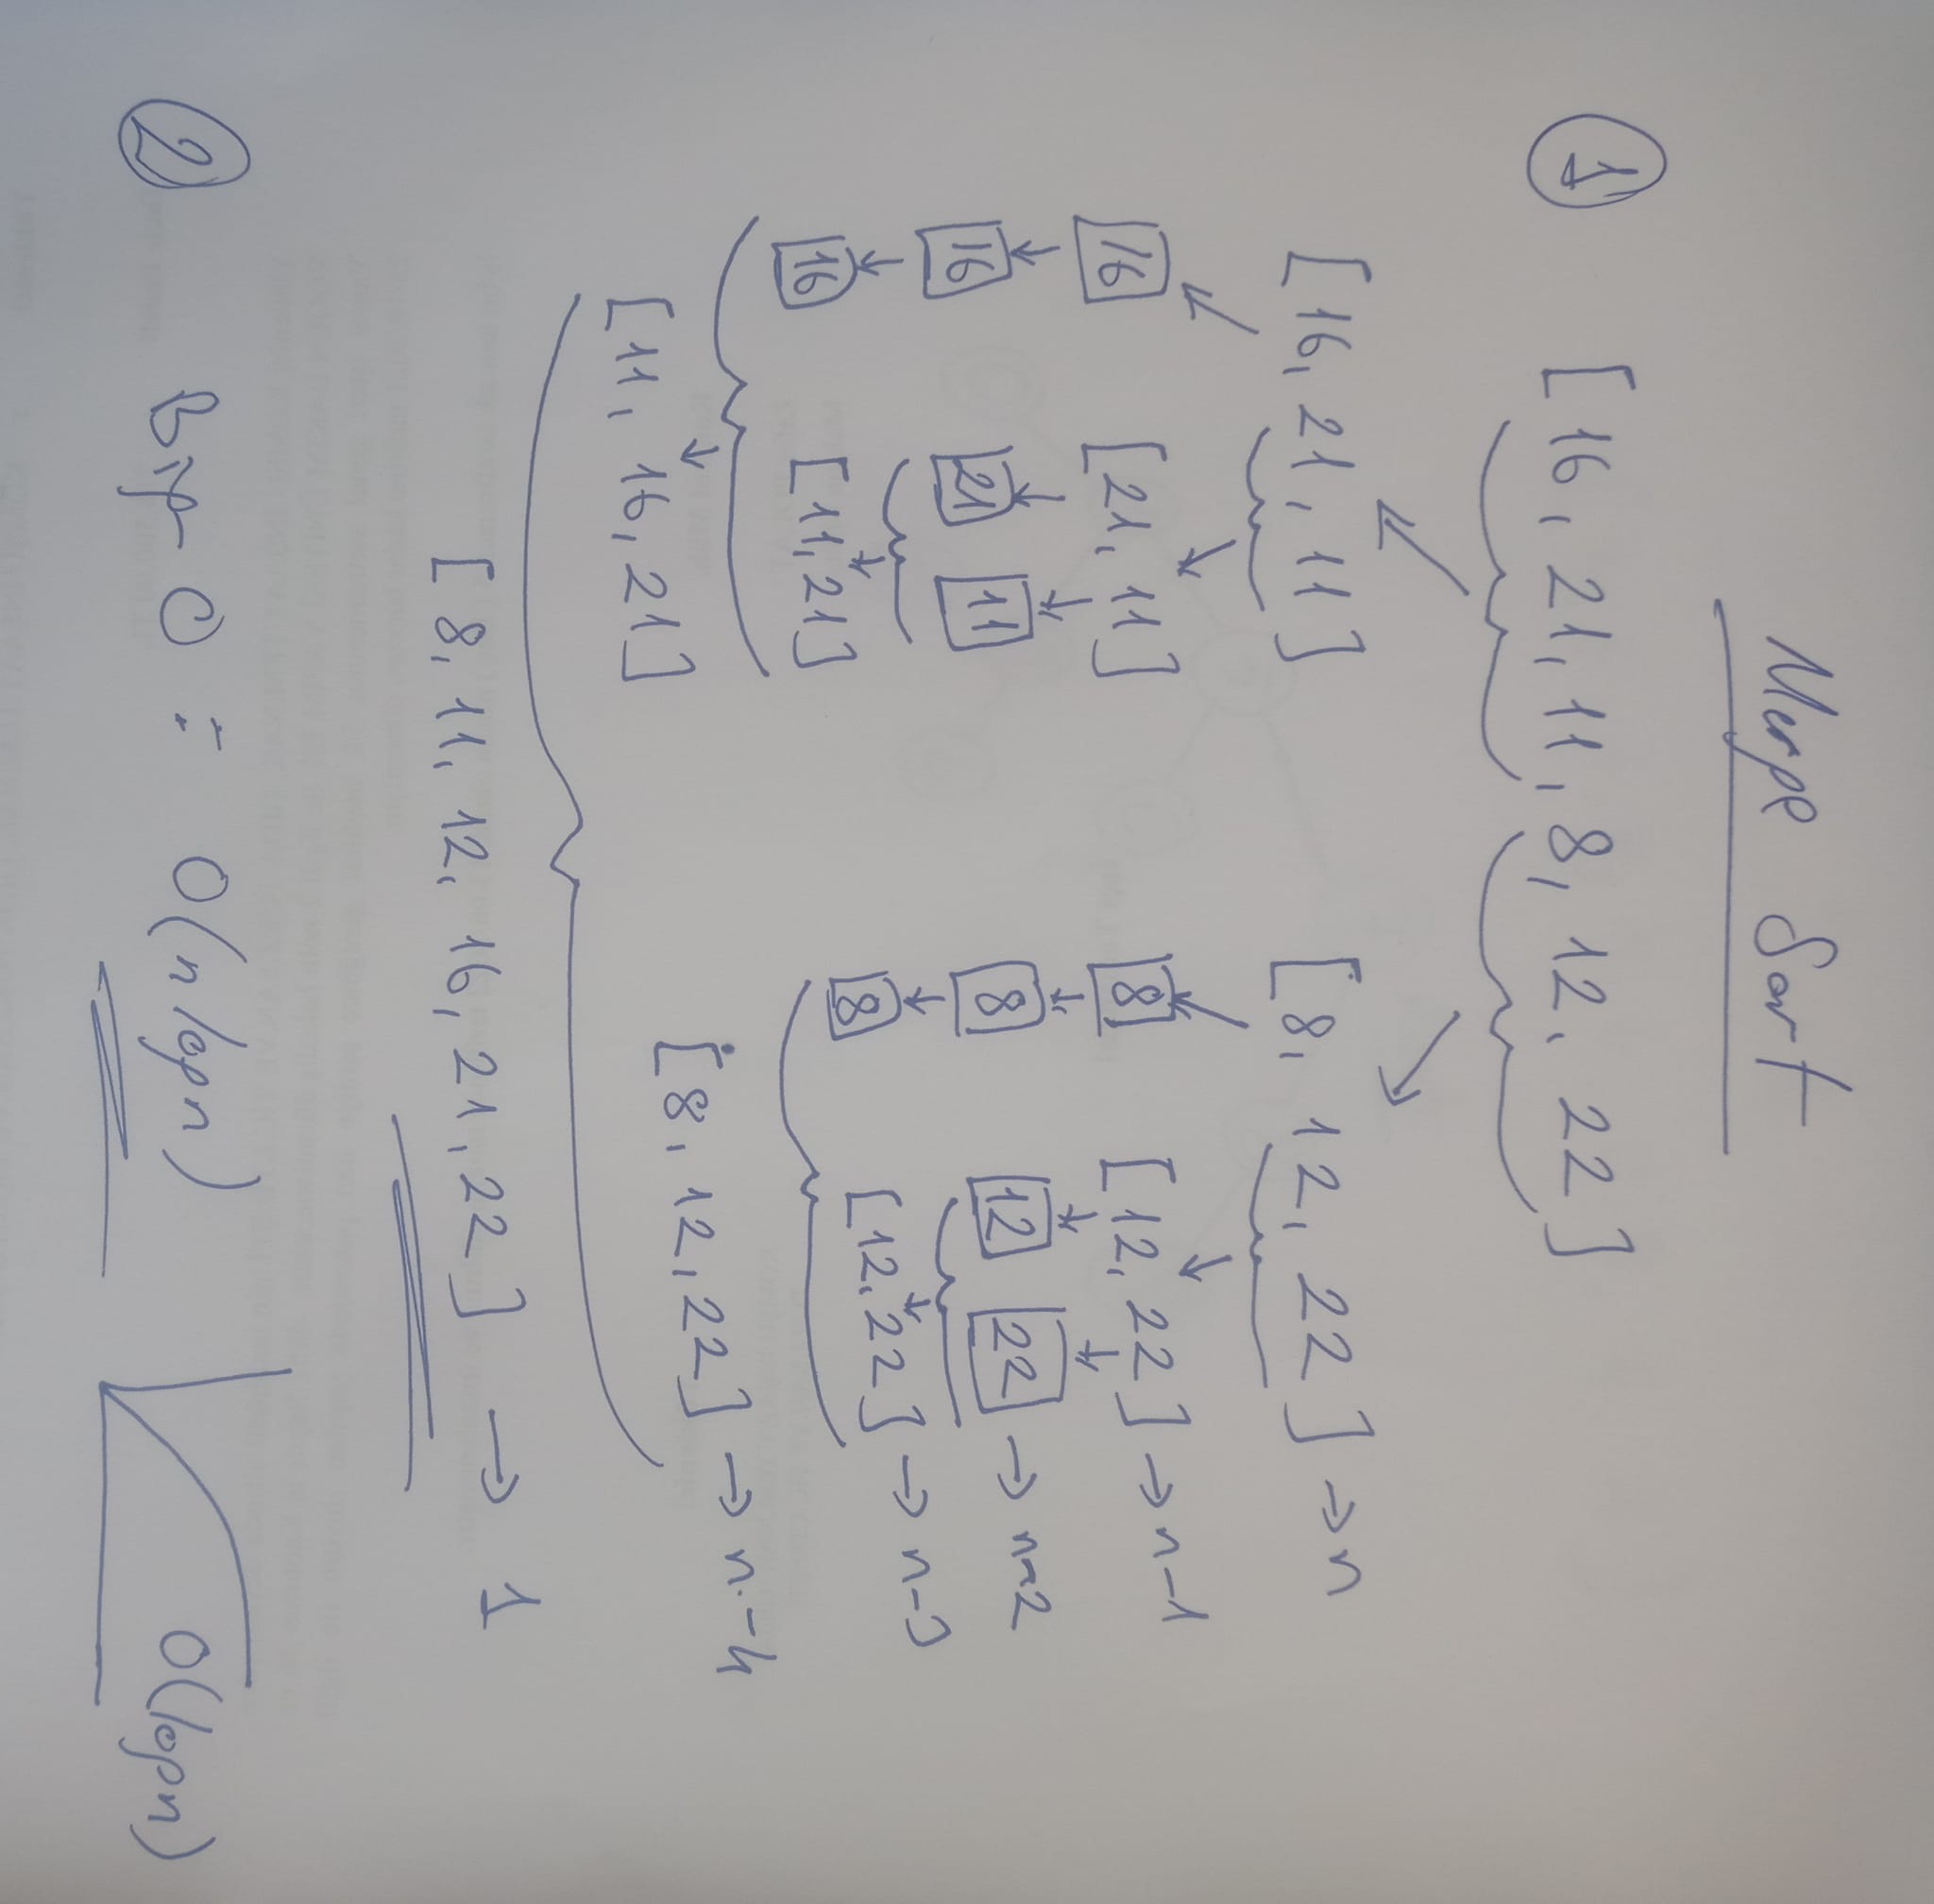 Merge Sort
1 [16, 21, 11, 8, 12, 22]
[16, 21, 11] [8, 12, 22] → n
16 [21, 11] 8 [12, 22] → n-1
16 21 11 8 12 22 → n-2
16 [11, 21] 8 [12, 22] → n-3
[11, 16, 21] [8, 12, 22] → n-4
[8, 11, 12, 16, 21, 22] → 1
2 Big-O : O(n logn) O(logn)